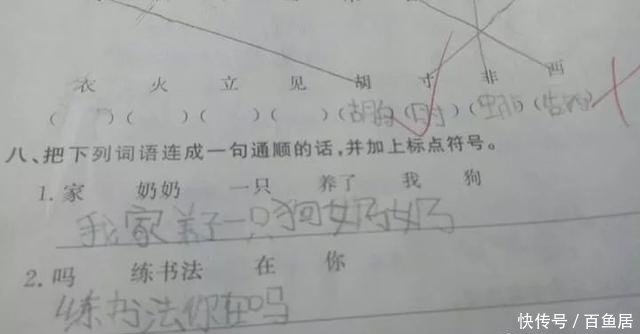 衣 火 立 见 胡 寸 非 西
( )( )( )( )(胡 )(时)( )( )
八、把下列词语连成一句通顺的话,并加上标点符号。
1.家 奶奶 一只 养了 我 狗
我家养了一只狗奶奶
2.吗 练书法 在 你
练书法你在吗
快传号/百鱼居